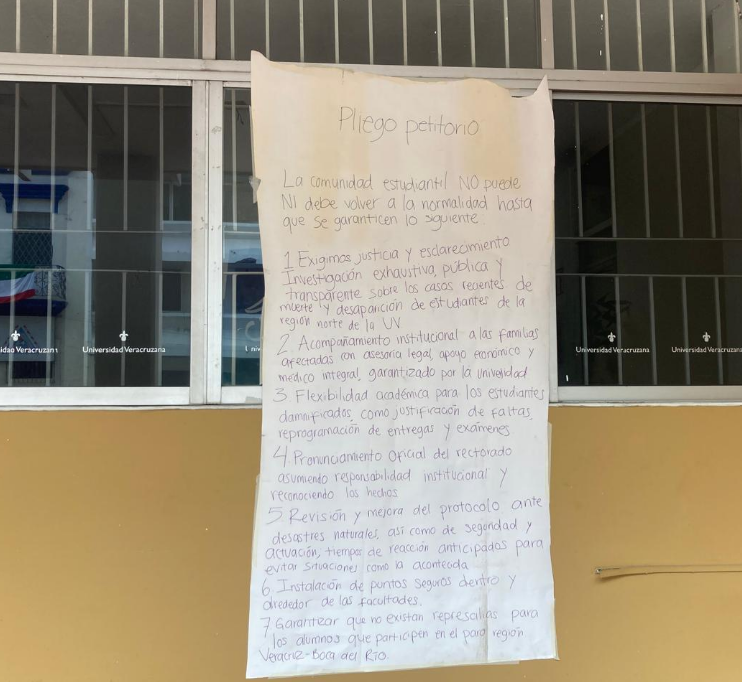 Pliego petitorio
La comunidad estudiantil NO puede
NI debe volver a la normalidad hasta
que se garanticen lo siguiente
1 Exigimos justicia y esclarecimiento
Investigación exhaustiva, pública y
transparente sobre los casos recientes de
muerte y desaparición de estudiantes de la
región norte de la UV
2 Acompañamiento institucional a las familias
afectadas con asesoría legal, apoyo económico y
médico integral, garantizado por la universidad
3 Flexibilidad académica para los estudiantes
damnificados como justificación de faltas,
reprogramación de entregas y exámenes
4 Pronunciamiento oficial del rectorado
asumiendo responsabilidad institucional y
reconociendo los hechos
5 Revisión y mejora del protocolo ante
desastres naturales, así como de seguridad y
actuación, tiempos de reacción anticipados para
evitar situaciones como la acontecida
6 Instalación de puntos seguros dentro y
alrededor de las facultades.
7 Garantizar que no existan represalias para
los alumnos que participen en el paro región
Veracruz-Boca del Río.
idad Veracruzana
Universidad Veracruzana
Univ
Universidad Veracruzana
Universidad Veracruzana